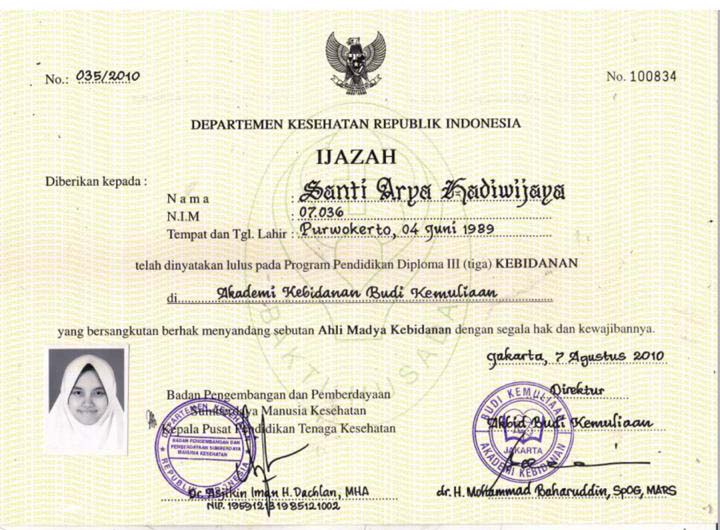 No.: 035/2010
No. 100834
DEPARTEMEN KESEHATAN REPUBLIK INDONESIA
IJAZAH
Diberikan kepada :
Nama : Santi Arya Hadiwijaya
N.I.M : 07.036
Tempat dan Tgl. Lahir : Purwokerto, 04 Juni 1989
telah dinyatakan lulus pada Program Pendidikan Diploma III (tiga) KEBIDANAN
di Akademi Kebidanan Budi Kemuliaan
yang bersangkutan berhak menyandang sebutan Ahli Madya Kebidanan dengan segala hak dan kewajibannya.
Jakarta, 7 Agustus 2010
Badan Pengembangan dan Pemberdayaan
Sumberdaya Manusia Kesehatan
Kepala Pusat Pendidikan Tenaga Kesehatan
Direktur
Akbid Budi Kemuliaan
DEPARTEMEN KESEHATAN
BADAN PENGEMBANGAN DAN
PEMBERDAYAAN SUMBERDAYA
MANUSIA KESEHATAN
REPUBLIK INDONESIA
BUDI KEMULIAAN
JAKARTA
AKADEMI KEBIDANAN
Dr. Asjikin Iman H. Dachlan, MHA
NIP. 195912131985121002
dr. H. Mohammad Baharuddin, SpOG, MARS